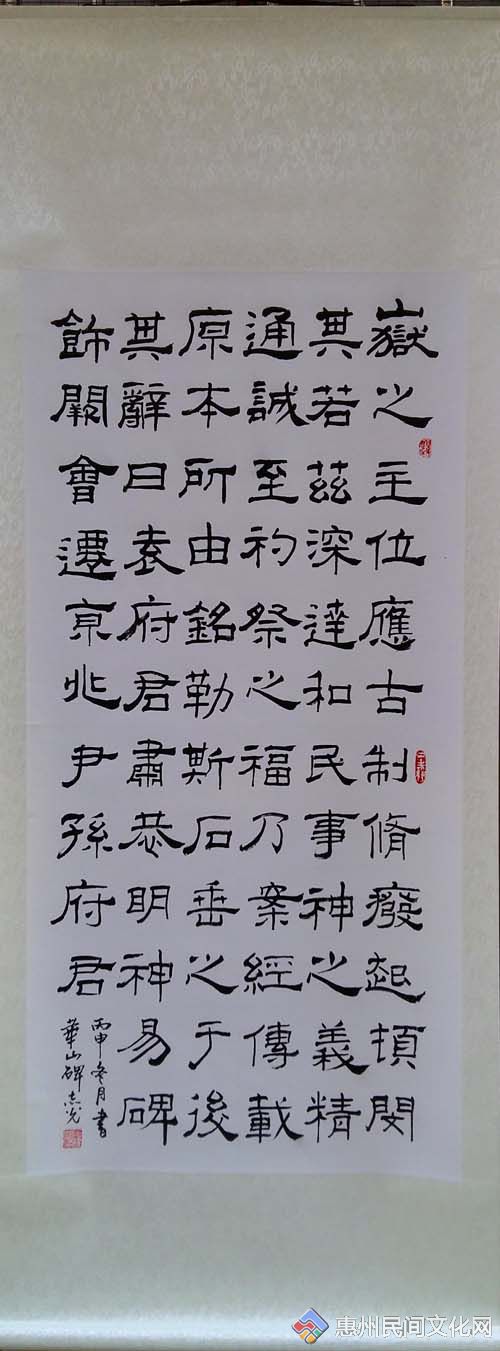 嶽之主位應古制脩廢起頓閔
其若茲深達和民事神之義精
通誠至礿祭之福乃案經傳載
原本所由銘勒斯石垂之于後
其辭曰袁府君肅恭明神易碑
飾闕會遷京兆尹孫府君
丙申冬月書
華山碑志光
惠州民间文化网